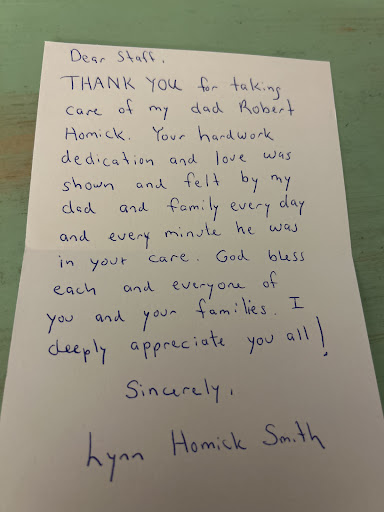 Dear Staff,
THANK YOU for taking
care of my dad Robert
Homick. Your hardwork
dedication and love was
shown and felt by my
dad and family every day
and every minute he was
in your care. God bless
each and everyone of
you and your families. I
deeply appreciate you all!
Sincerely,
Lynn Homick Smith